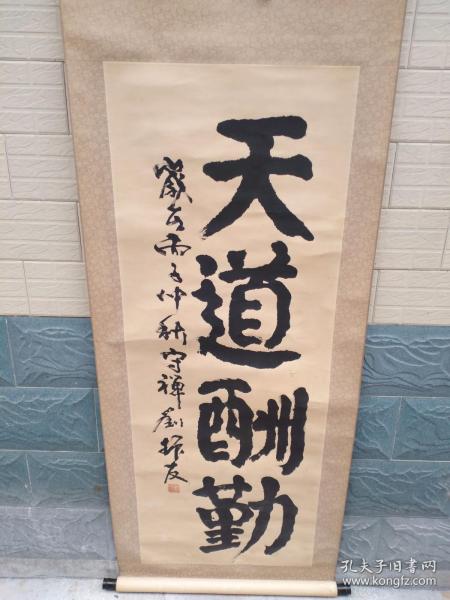 天道酬勤
歲在丙子仲秋守禅劉振友
孔夫子旧书网
www.kongfz.com